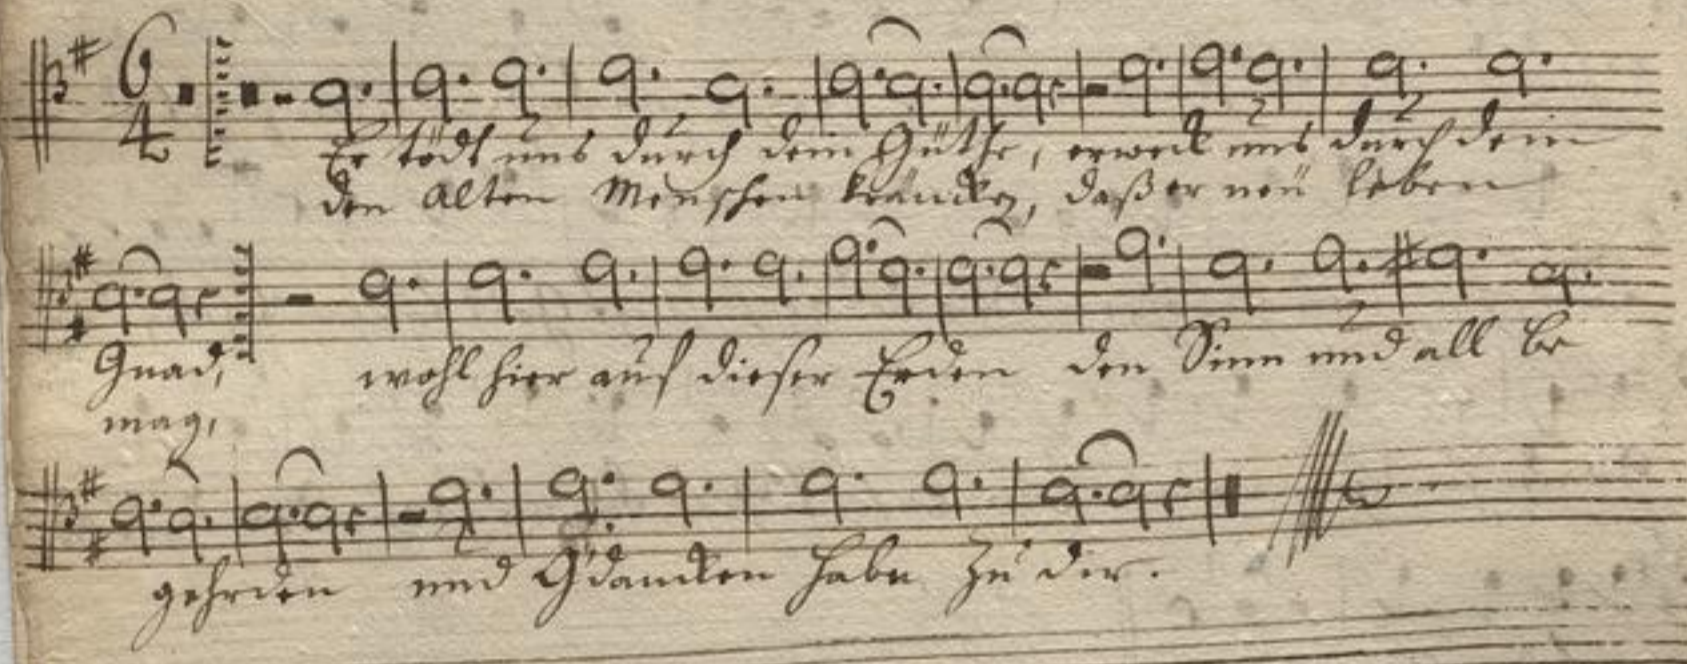 6
4
Er tödt uns durch dein Güthe, erweck uns durch dein
den alten Menschen kräncke, daß er neu leben
Gnad, wohl hier auf dieser Erden den Sinn und all be
mag,
gehrden und Gdancken habn zu dir.